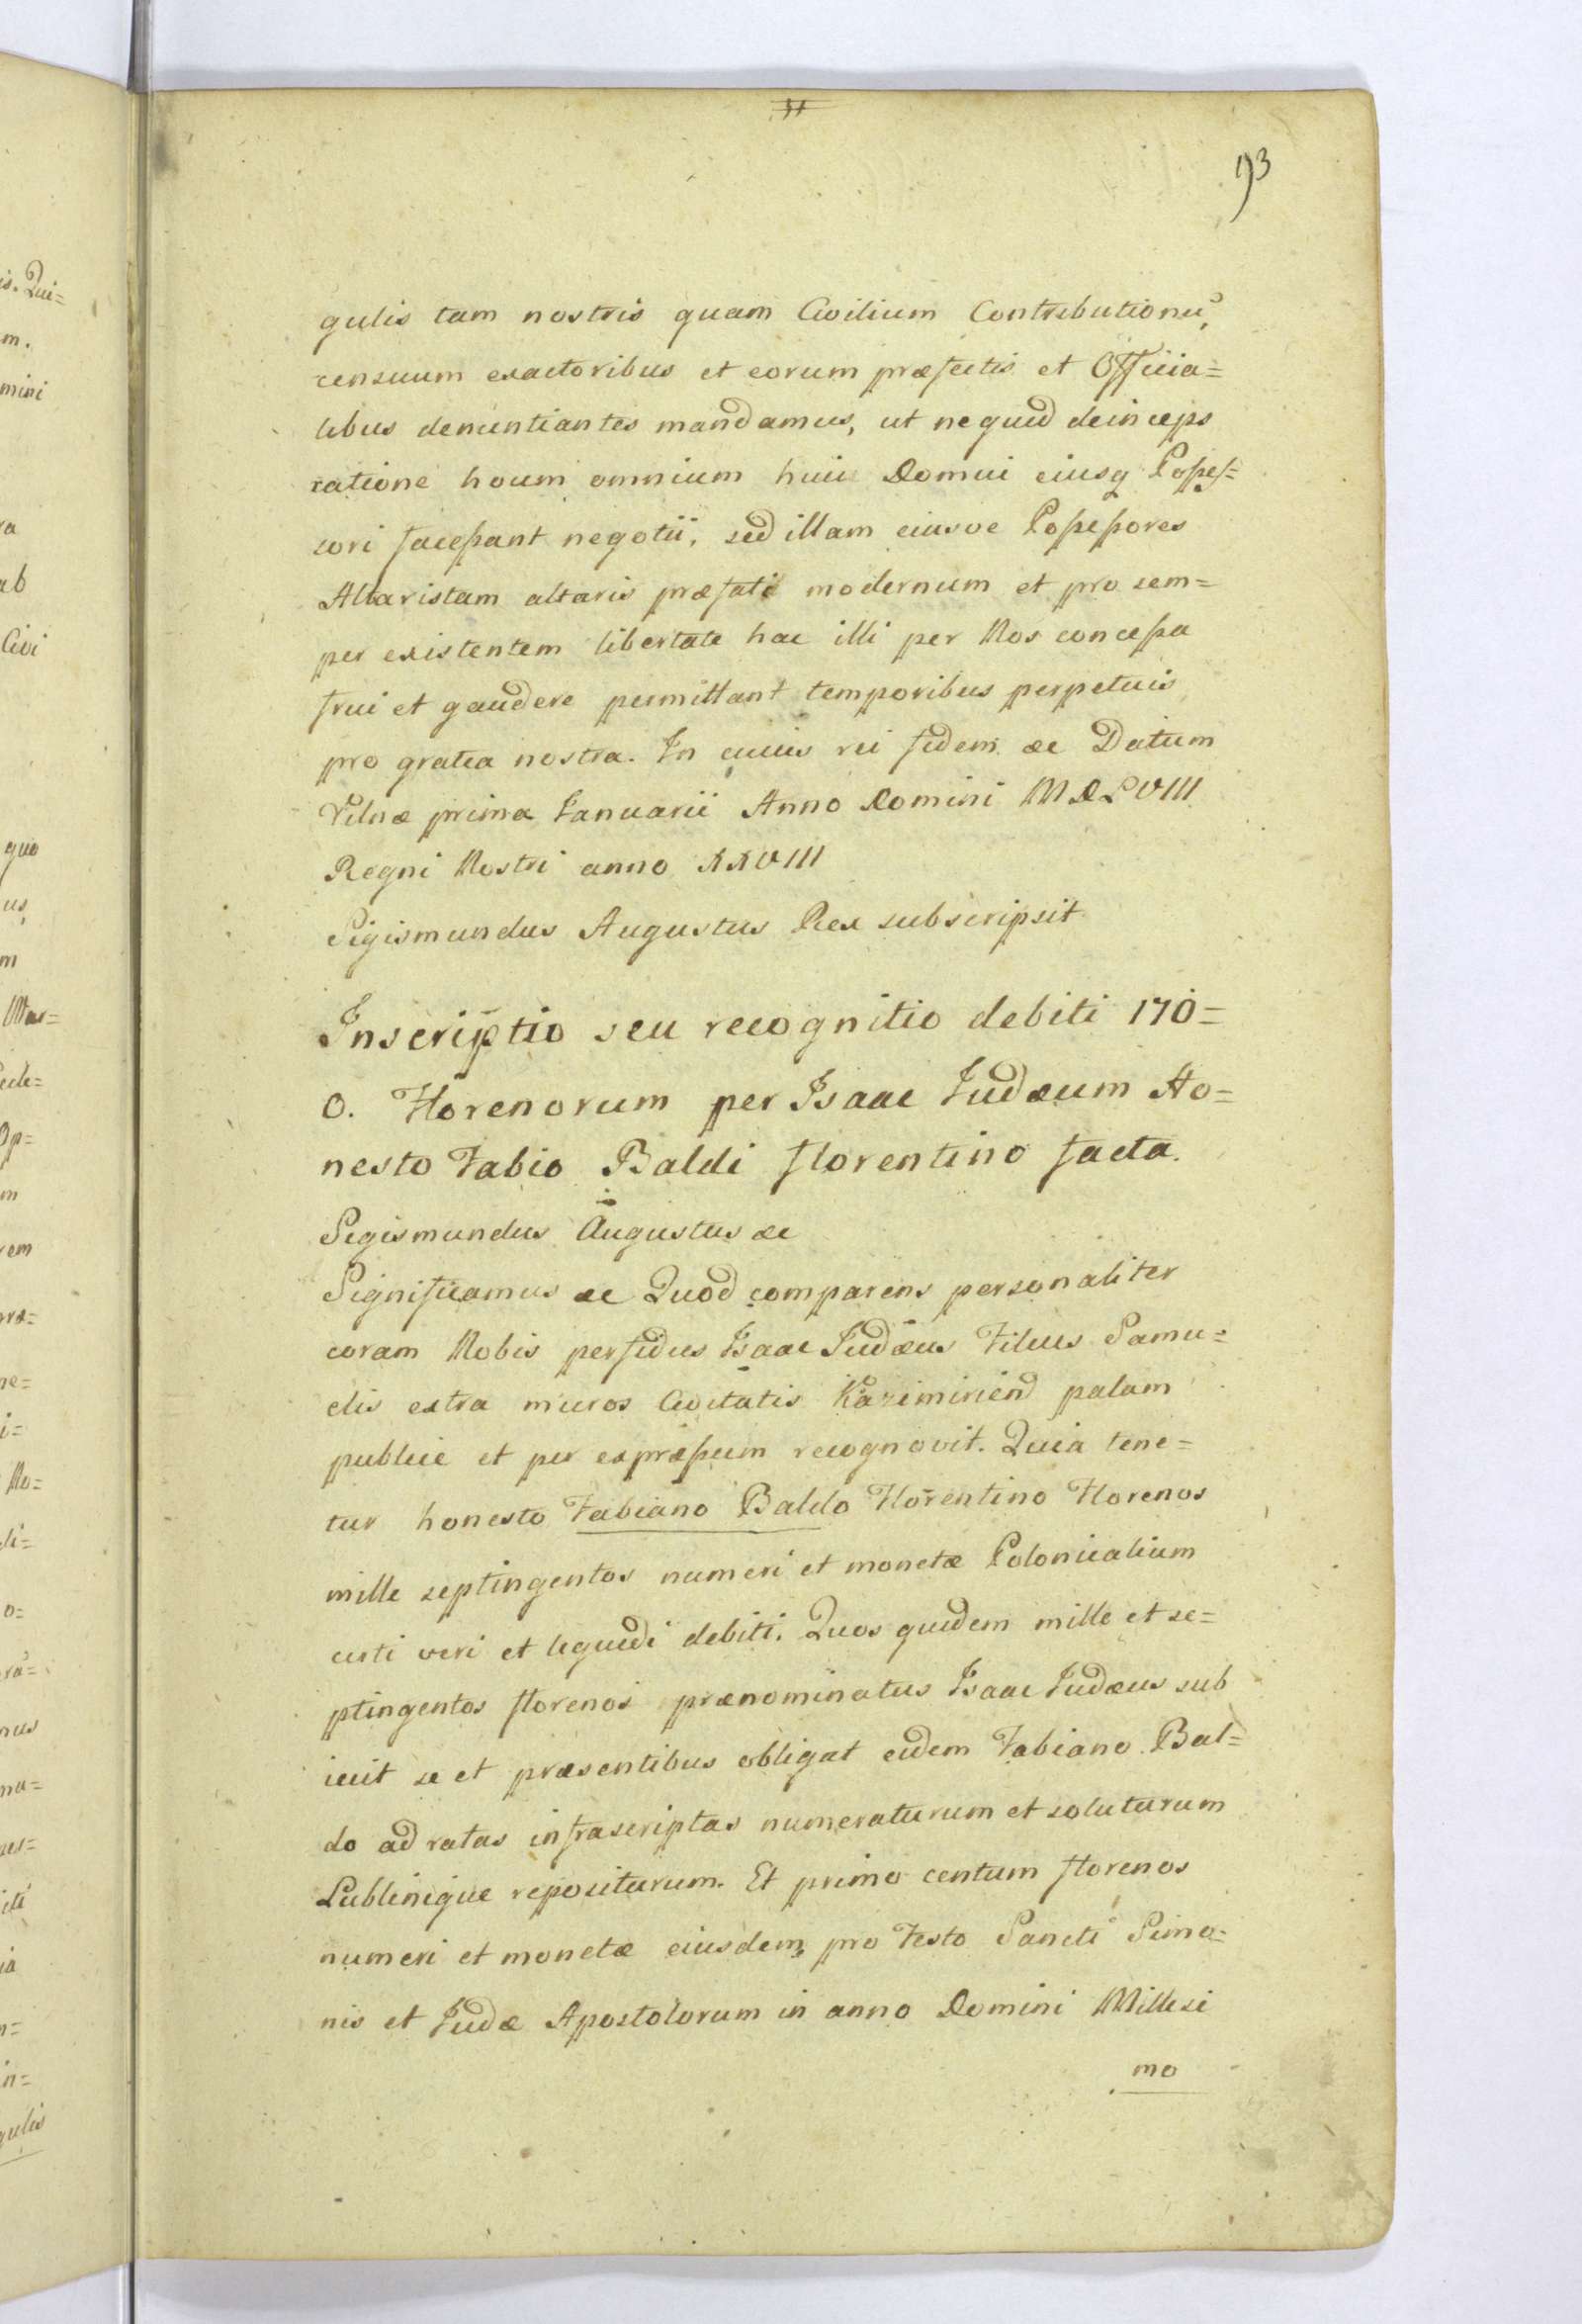 93
gulis tam nostris quam Civilium Contributionũ,
censuum exactoribus et eorum præfectis et Officia=
libus denuntiantes mandamus, ut ne quid deinceps
ratione horum omnium huic Domui eiusq Posses=
sori facessant negotii, sed illam eiusve Possessores
Altaristam altaris præfati modernum et pro sem=
per existentem libertate hac illi per Nos concessa
frui et gaudere permittant temporibus perpetuis
pro gratia nostra. In cuius rei fidem &c Datum
Vilnæ prima Januarii Anno Domini MDLVIII
Regni Nostri anno XXVIII
Sigismundus Augustus Rex subscripsit
Inscriptio seu recognitio debiti 170=
0. Florenorum per Isaac Judæum Ho=
nesto Fabio Baldi florentino facta.
Sigismundus Augustus &c
Significamus &c Quod comparens personaliter
coram Nobis perfidus Isaac Judæus Filius Samu=
elis extra muros Civitatis Kazimirien̄ palam
publice et per expressum recognovit. Quia tene=
tur honesto Fabiano Baldo Florentino Florenos
mille septingentos numeri et monetæ Polonicalium
certi veri et liquidi debiti. Quos quidem mille et se=
ptingentos florenos prænominatus Isaac Judæus sub
iicit se et præsentibus obligat eidem Fabiano Bal=
do ad ratas infrascriptas numeraturum et soluturum
Lublinique repositurum. Et primo centum florenos
numeri et monetæ eiusdem pro Festo Sancti Simo=
nis et Judæ Apostolorum in anno Domini Millesi
mo